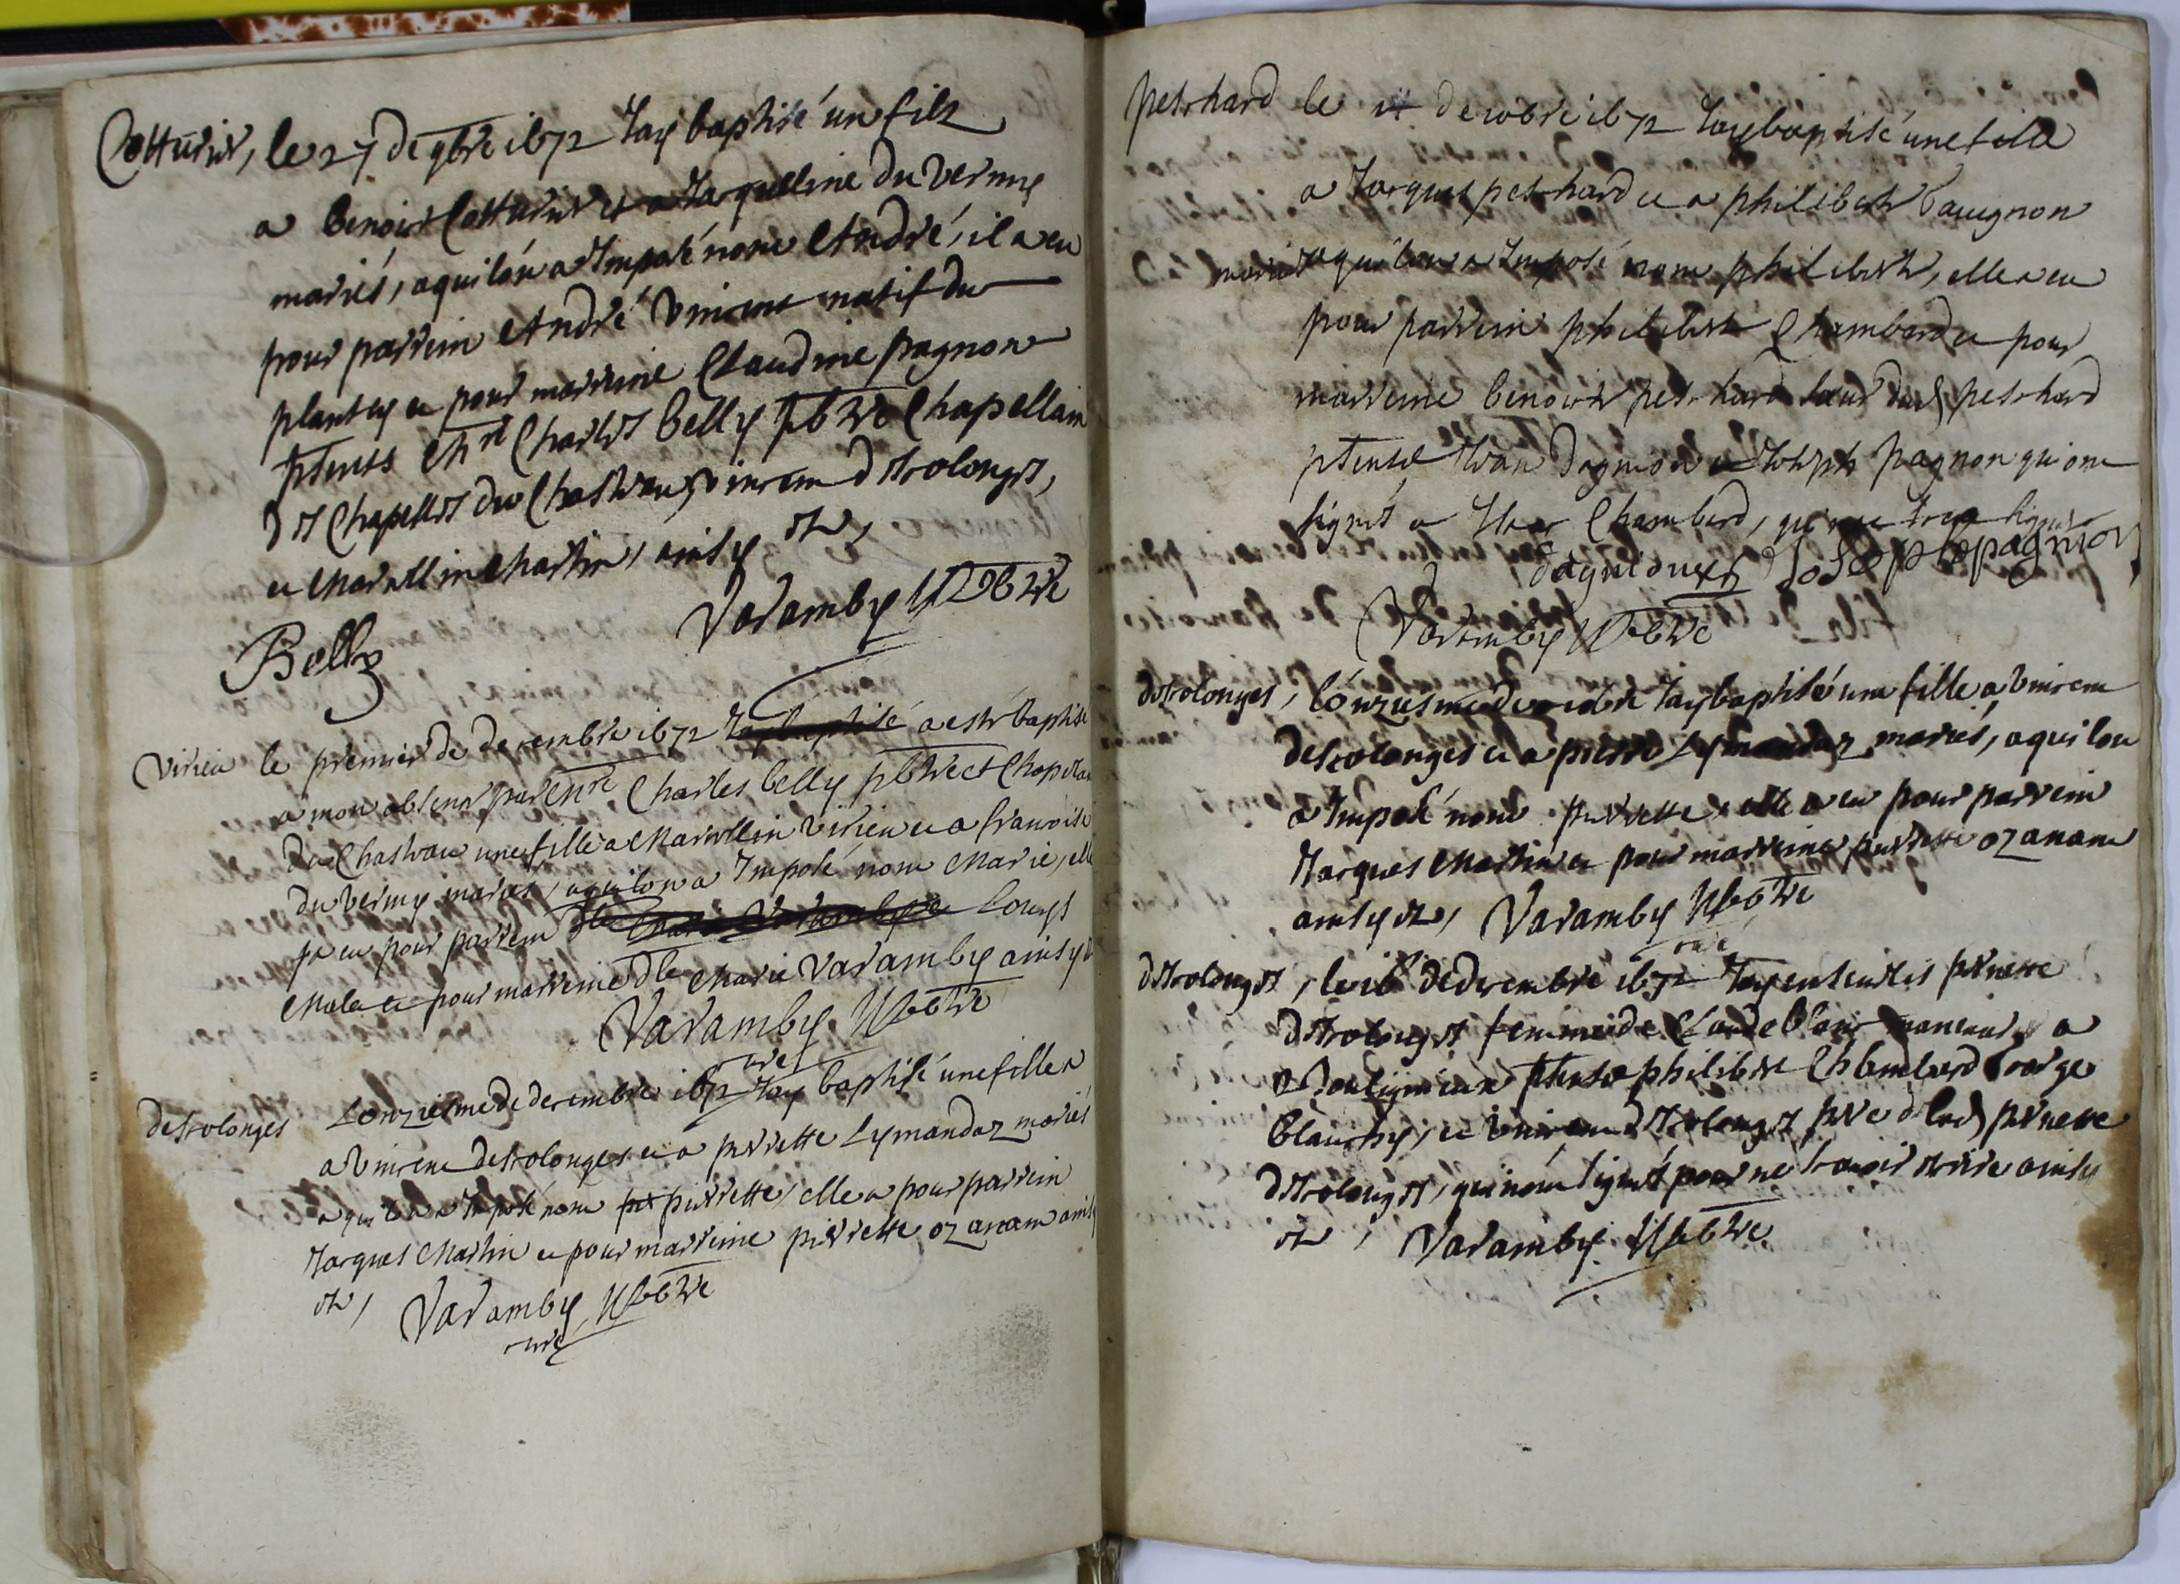 Cotturier, le 27 de 9bre 1672 Jay baptisé un filz
a benoist Cotturier et a Jaquelline du vernay
mariés, a qui lon a Imposé nom André, il a eu
pour parrein André vincent natif du
plantey et pour marreine Claudine pagnon
pnts Charles belly pbre Chapellain
des Chapelles du Chasteau, vincent detrolonges,
et Marcellin Martin, ainsy est,
Belly Varamby pbre
Virieu le premier de decembre 1672 Jay baptisé a esté baptisé
a mon absence par Charles belly pbre et Chapelain
du Chasteau une fille a Marcellin virieu et a francoise
du verney mariés, a qui lon a Imposé nom Marie, elle
a eu pour parrein Louys
et pour marreine dlle Marie Varamby ainsy est
Varamby pbre
curé
detrolonges Lonziesme de decembre 1672 Jay baptisé une fille a
a vincent detrolonges et a pierrette Lymandaz mariés
a qui lon a Imposé nom pierrette, elle a pour parrein
Jacques Martin et pour marreine pierrette ozanam ainsy
est, Varamby pbre
curé
petchard le decobre 1672 Jay baptisé une fille
a Jacques petchard et a philiberte
mariés a qui lon a Imposé nom philiberte, elle a eu
pour parrein philibert Chambard et pour
marreine benoiste petchard dud petchard
pnts Jean et Joseph pagnon qui ont
signés Chambard, signer
Josept pagnion
Varamby pbre
detrolonges, lonziesme decobre Jay baptisé une fille a vincent
detrolonges et a Lymandaz mariés, a qui lon
a Imposé nom pierrette elle a eu pour parrein
Jacques Martin et pour marreine pierrette ozanam
ainsy est, Varamby pbre
curé
detrolonges, le 16 de decembre 1672 Jay enseveli pernette
detrolonges femme de Claude blanc a
philibert Chambard George
blanchy, et vincent detrolonges pere de lad pernette
detrolonges, qui nont signés pour ne scavoir escrire ainsy
est, Varamby pbre